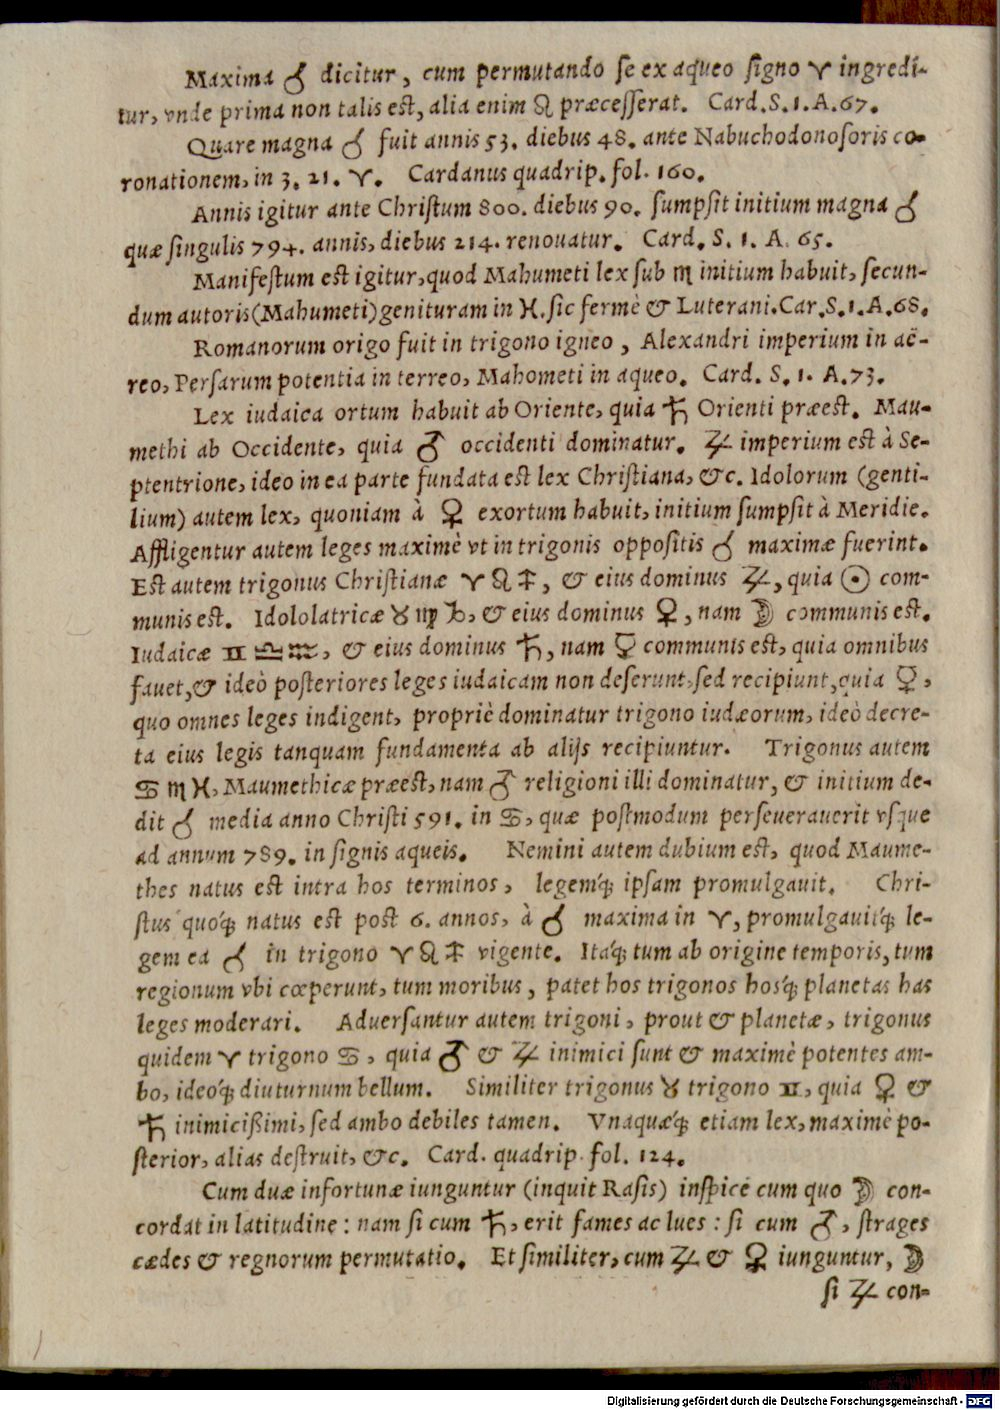 Maxima ☌ dicitur, cum permutando se ex aqueo signo ♈ ingredi-
tur, vnde prima non talis est, alia enim ♌ præcesserat. Card. S. 1. A. 67.
Quare magna ☌ fuit annis 53. diebus 48. ante Nabuchodonosoris co-
ronationem, in 3. 21. ♈. Cardanus quadrip. fol. 160.
Annis igitur ante Christum 800. diebus 90. sumpsit initium magna ☌
quæ singulis 794. annis, diebus 214. renouatur. Card. S. 1. A. 65.
Manifestum est igitur, quod Mahumeti lex sub ♏ initium habuit, secun-
dum autoris (Mahumeti) genituram in ♓. sic fermè & Luterani. Car. S. 1. A. 68.
Romanorum origo fuit in trigono igneo, Alexandri imperium in aë-
reo, Persarum potentia in terreo, Mahometi in aqueo. Card. S. 1. A. 73.
Lex iudaica ortum habuit ab Oriente, quia ♄ Orienti præest. Mau-
methi ab Occidente, quia ♂ occidenti dominatur. ♃ imperium est à Se-
ptentrione, ideo in ea parte fundata est lex Christiana, &c. Idolorum (genti-
lium) autem lex, quoniam à ♀ exortum habuit, initium sumpsit à Meridie.
Affligentur autem leges maximè vt in trigonis oppositis ☌ maximæ fuerint.
Est autem trigonus Christianæ ♈ ♌ ♐, & eius dominus ♃, quia ☉ com-
munis est. Idololatricæ ♉ ♍ ♑, & eius dominus ♀, nam ☽ communis est.
Iudaicæ ♊ ♎ ♒, & eius dominus ♄, nam ☿ communis est, quia omnibus
fauet, & ideò posteriores leges iudaicam non deserunt, sed recipiunt, quia ☿,
quo omnes leges indigent, propriè dominatur trigono iudæorum, ideò decre-
ta eius legis tanquam fundamenta ab alijs recipiuntur. Trigonus autem
♋ ♏ ♓, Maumethicæ præest, nam ♂ religioni illi dominatur, & initium de-
dit ☌ media anno Christi 591. in ♋, quæ postmodum perseuerauerit vsque
ad annum 789. in signis aqueis. Nemini autem dubium est, quod Maume-
thes natus est intra hos terminos, legemq́; ipsam promulgauit. Chri-
stus quoq́; natus est post 6. annos, à ☌ maxima in ♈, promulgauitq́; le-
gem ea ☌ in trigono ♈ ♌ ♐ vigente. Itaq́; tum ab origine temporis, tum
regionum vbi cœperunt, tum moribus, patet hos trigonos hosq́; planetas has
leges moderari. Aduersantur autem trigoni, prout & planetæ, trigonus
quidem ♈ trigono ♋, quia ♂ & ♃ inimici sunt & maximè potentes am-
bo, ideóq́; diuturnum bellum. Similiter trigonus ♉ trigono ♊, quia ♀ &
♄ inimicißimi, sed ambo debiles tamen. Vnaquæq́; etiam lex, maximè po-
sterior, alias destruit, &c. Card. quadrip. fol. 124.
Cum duæ infortunæ iunguntur (inquit Rasis) inspice cum quo ☽ con-
cordat in latitudine: nam si cum ♄, erit fames ac lues: si cum ♂, strages
cædes & regnorum permutatio. Et similiter, cum ♃ & ♀ iunguntur, ☽
si ♃ con-
Digitalisierung gefördert durch die Deutsche Forschungsgemeinschaft - DFG